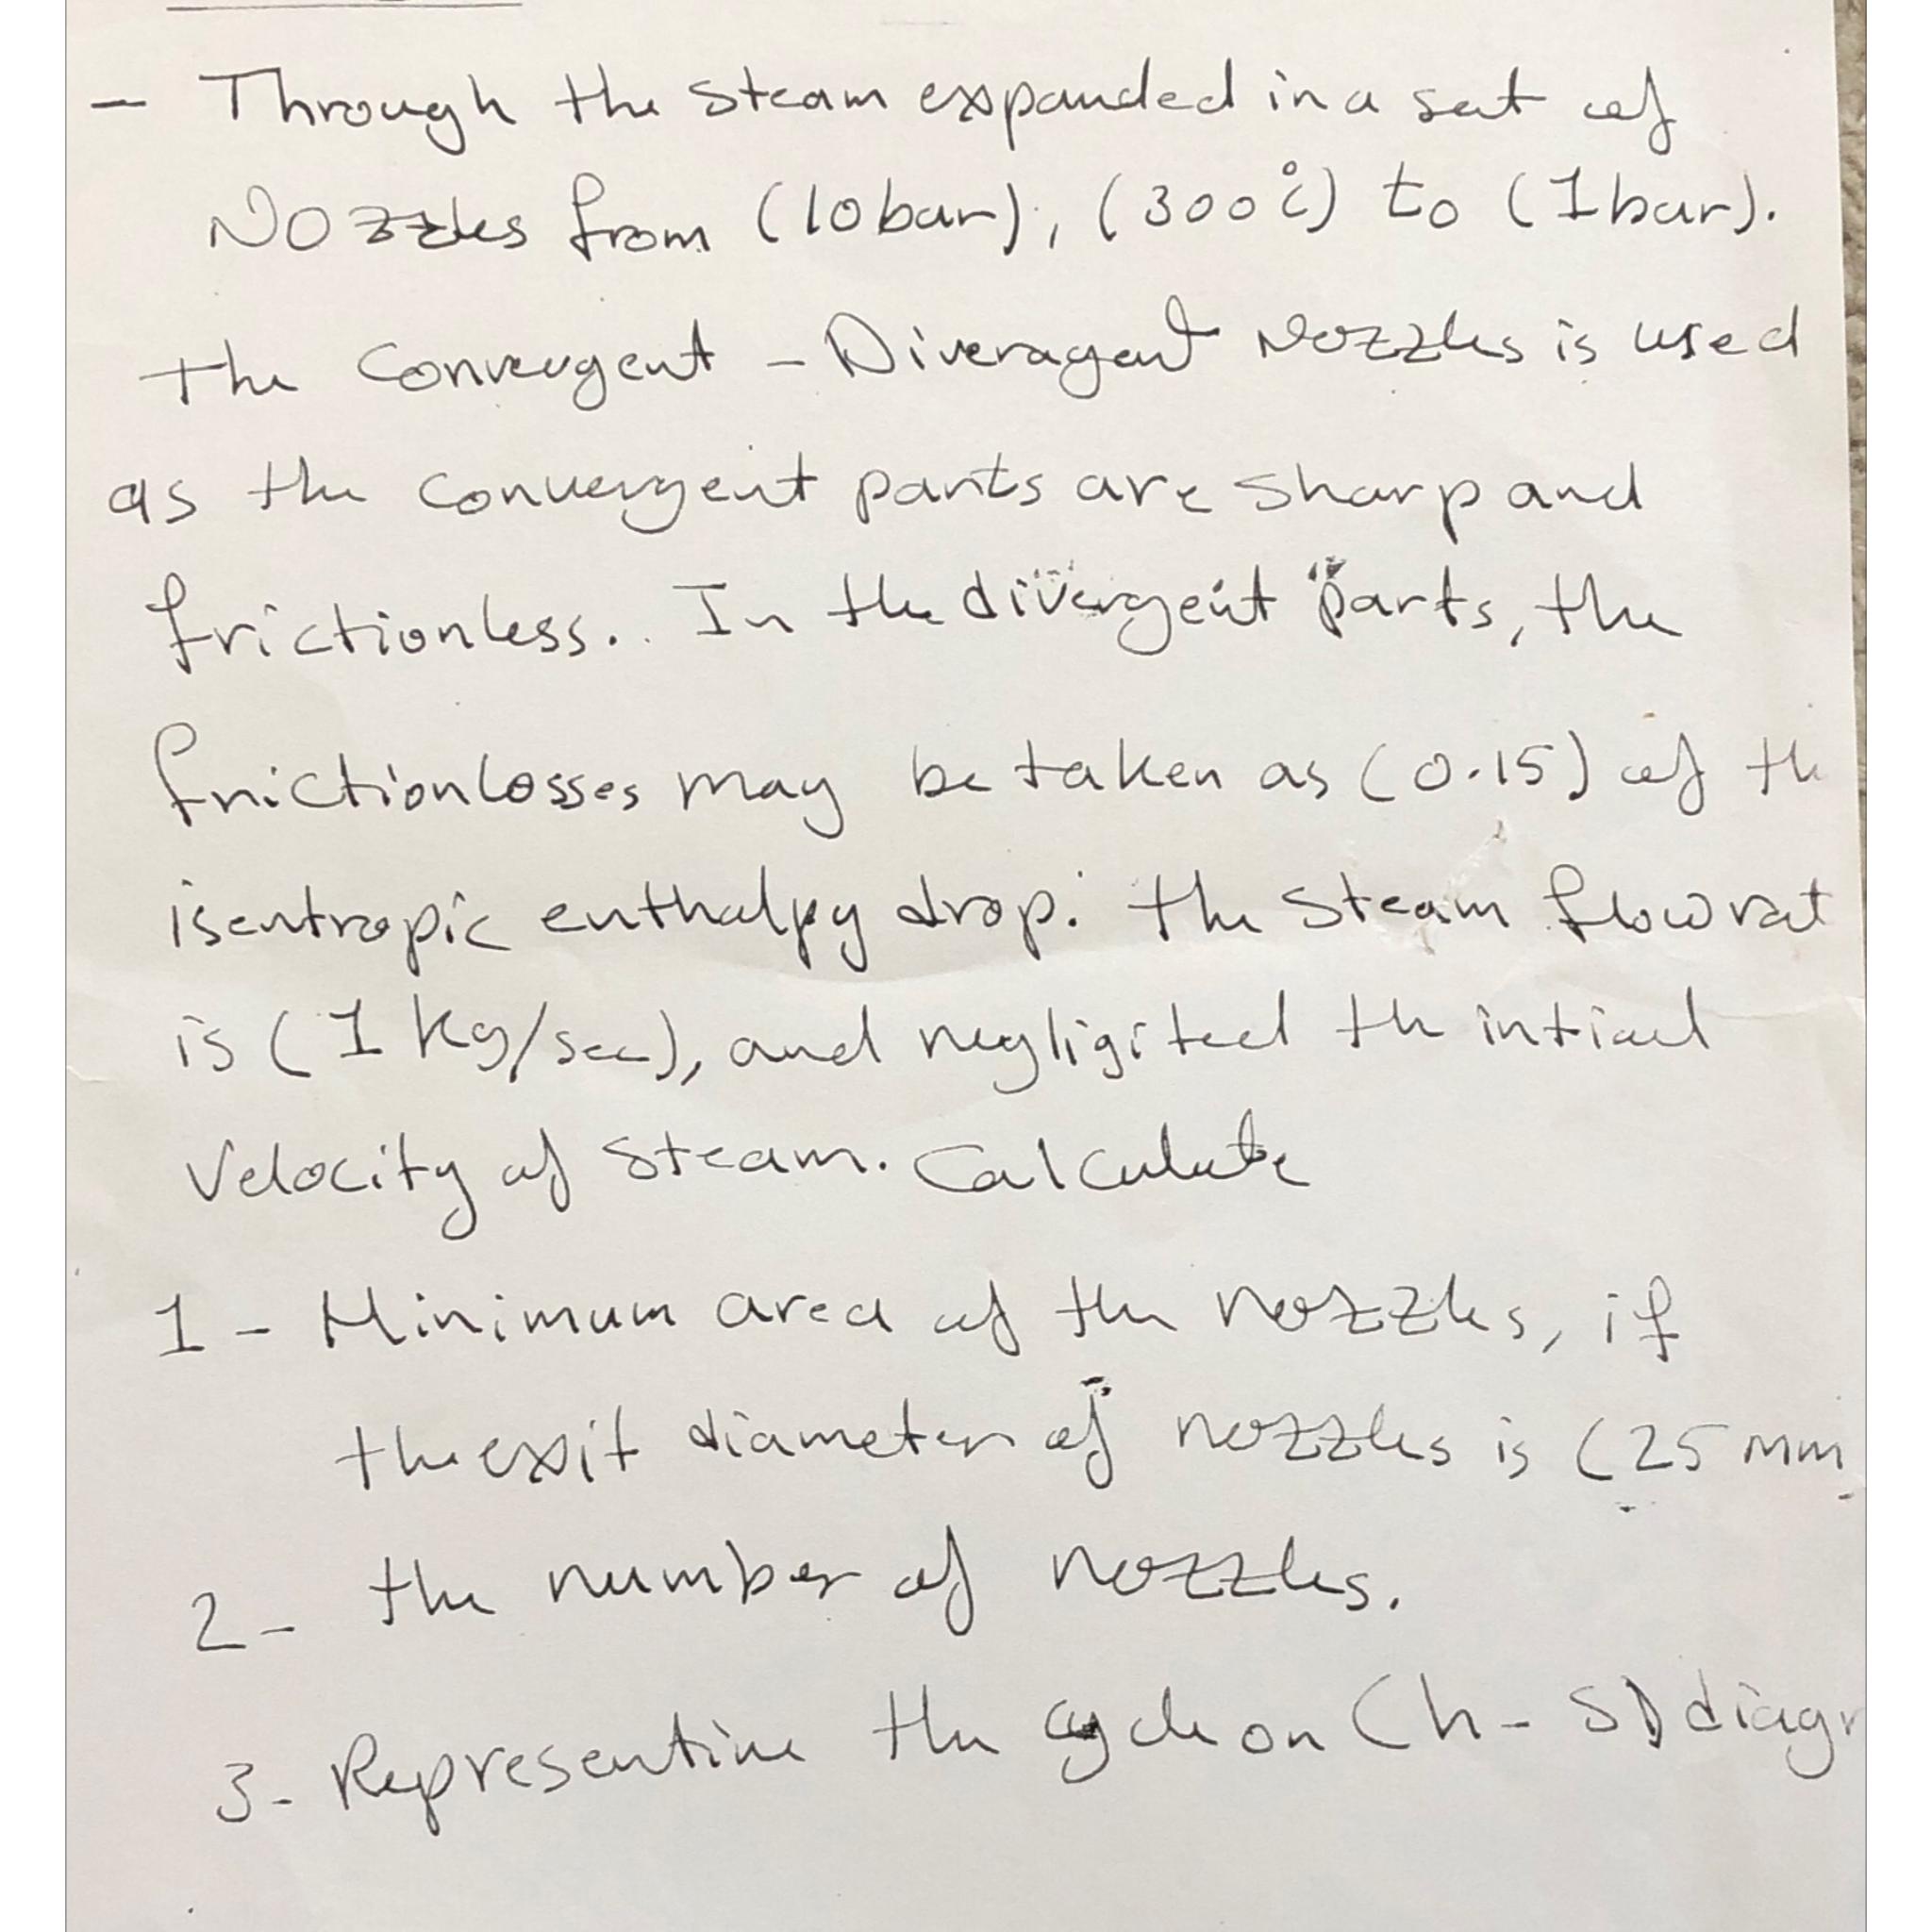 - Through the steam expanded in a set of
Nozzles from (10 bar), (300°c) to (1 bar).
the Convergent - Diveragent Nozzles is used
as the convergent parts are sharp and
frictionless. In the divergent parts, the
friction losses may be taken as (0.15) of th
isentropic enthalpy drop. the steam flow rat
is (1 kg/sec), and negligited th intial
Velocity of steam. Calculate
1 - Minimum area of the nozzles, if
the exit diameter of nozzles is (25 mm
2 - the number of nozzles.
3 - Representine the cycle on (h - s) diagr